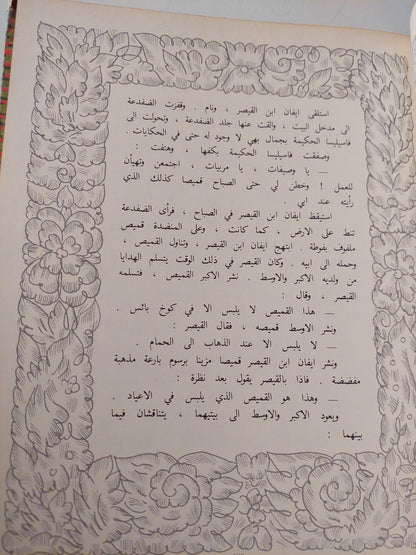 استلقى ايفان ابن القيصر ، ونام . وقفزت الضفدعة
الى مدخل البيت ، والقت عنها جلد الضفدعة ، وتحولت الى
فاسيليسا الحكيمة بجمال بهي لا وجود له حتى في الحكايات .
وصفقت فاسيليسا الحكيمة بكفها ، وهتفت :
— يا وصيفات ، يا مربيات ، اجتمعن وتهيأن
للعمل ! وخطن لي حتى الصباح قميصا كذلك الذي
رأيته عند ابي .
استيقظ ايفان ابن القيصر في الصباح ، فرأى الضفدعة
تنط على الارض ، كما كانت ، وعلى المنضدة قميص
ملفوف بفوطة . ابتهج ايفان ابن القيصر ، وتناول القميص ،
وحمله الى ابيه . وكان القيصر في ذلك الوقت يتسلم الهدايا
من ولديه الاكبر والاوسط . نشر الاكبر القميص ، فتسلمه
القيصر ، وقال :
— هذا القميص لا يلبس الا في كوخ بائس .
ونشر الاوسط قميصه ، فقال القيصر :
— لا يلبس الا عند الذهاب الى الحمام .
ونشر ايفان ابن القيصر قميصا مزينا برسوم بارعة مذهبة
مفضضة . فاذا بالقيصر يقول بعد نظرة :
— وهذا هو القميص الذي يلبس في الاعياد .
ويعود الاكبر والاوسط الى بيتيهما ، يتناقشان فيما
بينهما :